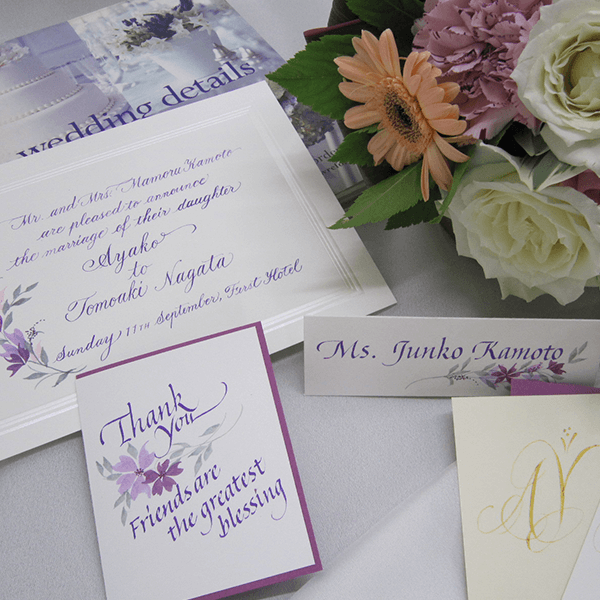 wedding details
Mr. and Mrs. Mamoru Kamoto
are pleased to announce
the marriage of their daughter
Ayako
to
Tomouki Nagata
Sunday 11TH September, First Hotel
Ms. Junko Kamoto
Thank
you
Friends are
the greatest
blessing